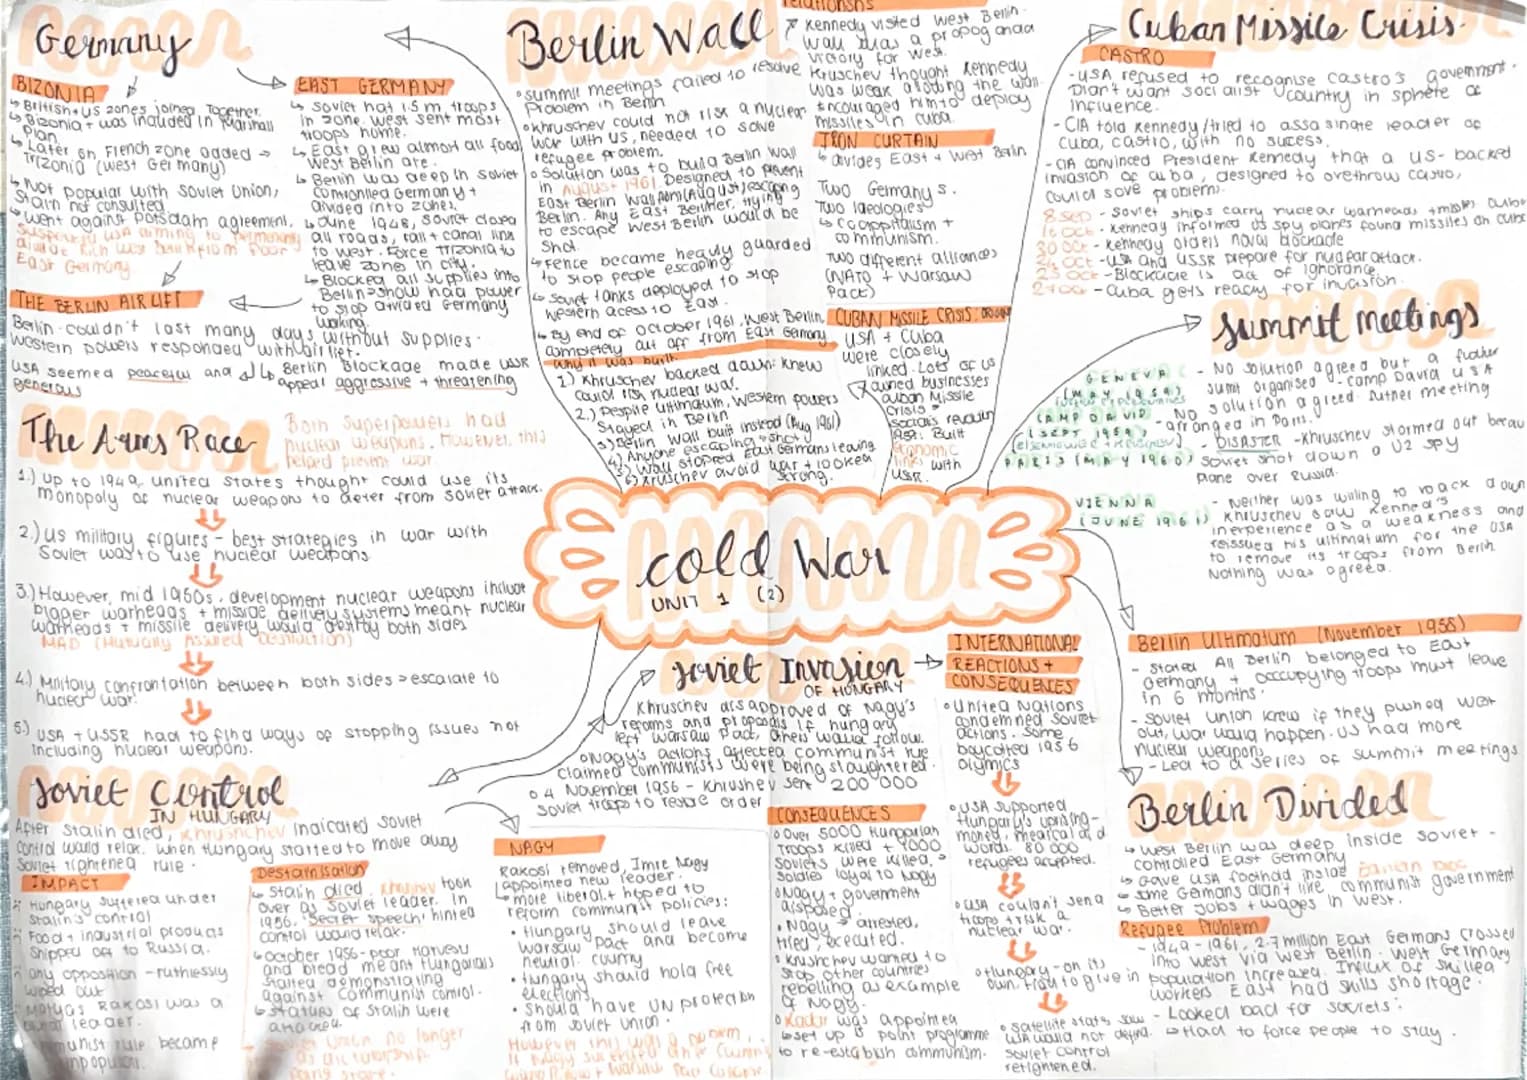 Germany
BIZONIA
↳ British + US zones joined together.
↳ Bizonia + was included in Marshall
Plan
↳ Later on French zone added →
Trizonia (West Germany)
↳ Not popular with Soviet Union,
Stalin not consulted
↳ Went against Potsdam agreement.
East Germany
EAST GERMANY
↳ Soviet hat 1.5 m troops
in zone. West sent most
troops home.
↳ East grew almost all food
West Berlin ate.
↳ Berlin was deep in Soviet
controlled Germany +
divided into zones.
↳ June 1948, Soviet closed
all roads, rail + canal link
to West. Force Trizonia to
leave zones in city.
↳ Blocked all supplies into
Berlin → show had power
to stop divided Germany
working.
THE BERLIN AIRLIFT
Berlin couldn't last many days without supplies.
Western powers responded with airlift.
USA seemed peaceful and
generous
↳ Berlin Blockade made USSR
appeal aggressive + threatening
The Arms Race
Both superpowers had
nuclear weapons. However, this
helped prevent war.
1.) Up to 1949, United States thought could use its
monopoly of nuclear weapons to deter from Soviet attack.
2.) US military figures - best strategies in war with
Soviet was to use nuclear weapons
3.) However, mid 1960s, development nuclear weapons include
bigger warheads + missile delivery systems meant nuclear
warheads + missile delivery would destroy both sides
MAD (Mutually Assured Destruction)
4.) Military confrontation between both sides → escalate to
nuclear war.
5.) USA + USSR had to find ways of stopping issues not
including nuclear weapons.
Soviet Control
IN HUNGARY
After Stalin died, Khrushchev indicated Soviet
control would relax. When Hungary started to move away
Soviet tightened rule.
IMPACT
Hungary suffered under
Stalin's control
Food + industrial products
shipped off to Russia.
any opposition - ruthlessly
wiped out
Matyas Rakosi was a
leader.
rule became
Destalinisation
↳ Stalin died. Khrushev took
over as Soviet leader. In
1956, 'secret speech' hinted
control would relax.
↳ October 1956 - poor harvest
and bread meant Hungarians
started demonstrating
against Communist control.
↳ Statues of Stalin were
attacked.
NAGY
Rakosi removed, Imre Nagy
appointed new leader.
↳ more liberal + hoped to
reform communist policies:
• Hungary should leave
Warsaw Pact and become
neutral country
• Hungary should hold free
elections
• Should have UN protection
from Soviet Union.
However this was a problem,
Berlin Wall
• Summit meetings failed to resolve
Problem in Berlin
• Khruschev could not risk a nuclear
war with US, needed to solve
refugee problem.
• Solution was to build Berlin Wall
in August 1961. Designed to prevent
East Berlin escaping
Berlin. Any East Berliner, trying
to escape West Berlin would be
shot.
↳ Fence became heavily guarded
to stop people escaping
↳ Soviet tanks deployed to stop
Western acess to East.
↳ By end of october 1961, West Berlin
completely cut off from East Germany
why it was built:
1) Khruschev backed down: knew
could risk nuclear war.
2.) Despite ultimatum, Western powers
stayed in Berlin
3) Berlin Wall built instead (Aug 1961)
4) Anyone escaping → shot
5) Wall stopped East Germans leaving
6) Kruschev avoid war + looked
strong.
relationshs
Kennedy visited West Berlin.
Wall was a propoganda
victory for West.
Kruschev thought Kennedy
was weak allowing the wall.
Encouraged him to deploy
missiles in Cuba.
IRON CURTAIN
↳ divides East + West Berlin
Two Germanys.
Two Ideologies
↳ capitalism +
communism.
Two different alliances
(NATO + Warsaw
Pact)
CUBAN MISSILE CRISIS:
USA + Cuba
were closely
linked. Lots of US
owned businesses
Cuban Missile
Crisis →
1959: Built
economic
links with
USSR.
cold War
UNIT 1 (2)
Soviet Invasion
OF HUNGARY
Khruschev disapproved of Nagy's
reforms and proposals. If Hungary
left Warsaw Pact, others would follow.
• Nagy's actions affected communist rule
claimed communists were being slaughtered.
• 4 November 1956 - Khrushev sent 200 000
Soviet troops to restore order
CONSEQUENCES
• Over 5000 Hungarian
troops killed + 1000
Soviets were killed,
soldies loyal to Nagy
• Nagy + government
disposed.
• Nagy → arrested,
tried, executed.
• Krushchev wanted to
stop other countries
rebelling as example
of Nagy.
• Kadar was appointed
↳ set up 15 point programme
to re-establish communism.
INTERNATIONAL
REACTIONS +
CONSEQUENCES
• United Nations
condemned Soviet
actions. Some
boycotted 1956
Olymics
• USA supported
Hungary's uprising -
money, medical aid
words. 80 000
refugees accepted.
• USA couldn't send
troops → risk a
nuclear war.
• Hungary - on its
own. Had to give in
• Satellite stats saw
USA would not defend.
Soviet control
retightened.
Cuban Missile Crisis.
CASTRO
- USA refused to recognise Castro's government.
Didn't want socialist country in sphere of
influence.
- CIA told Kennedy / tried to assasinate leader of
Cuba, Castro, with no sucess.
- CIA convinced President Kennedy that a US-backed
invasion of Cuba, designed to overthrow Castro,
could solve problems.
8 Sep - Soviet ships carry nuclear warheads + missiles Cuba
16 Oct - Kennedy informed US spy planes found missiles on Cuba
20 Oct - Kennedy orders naval blockade
- USA and USSR prepare for nuclear attack.
- Blockade is act of ignorance.
27 Oct - Cuba gets ready for invasion.
Summit meetings
GENEVA
(MAY 1959)
- No solution agreed but a further
sumit organised - Camp David USA
CAMP DAVID
(SEPT 1959)
No solution agreed. Futher meeting
arranged in Paris.
PARIS (MAY 1960)
- DISASTER - Khruschev stormed out becau
Soviet shot down a U2 spy
plane over Russia.
VIENNA
(JUNE 1961)
- Neither was willing to back down
Khruschev saw Kenned's
inperience as a weakness and
reissued his ultimatum for the USA
to remove its troops from Berlin
Nothing was agreed.
Berlin Ultimatum (November 1958)
- Stated All Berlin belonged to East
Germany + occupying troops must leave
in 6 months.
- Soviet Union knew if they pushed West
out, war would happen. US had more
nuclear weapons
- Led to a series of summit meetings
Berlin Divided
↳ West Berlin was deep inside Soviet -
controlled East Germany
↳ Gave USA foothold inside Eastern Bloc
↳ Some Germans didn't like communist government
↳ Better jobs + wages in West.
Refugee Problem
- 1949 - 1961, 2.7 million East Germans crossed
into West via West Berlin. West Germany
population increased. Influx of skilled
workers East had skills shortage.
- Looked bad for Soviets:
↳ Had to force people to stay.